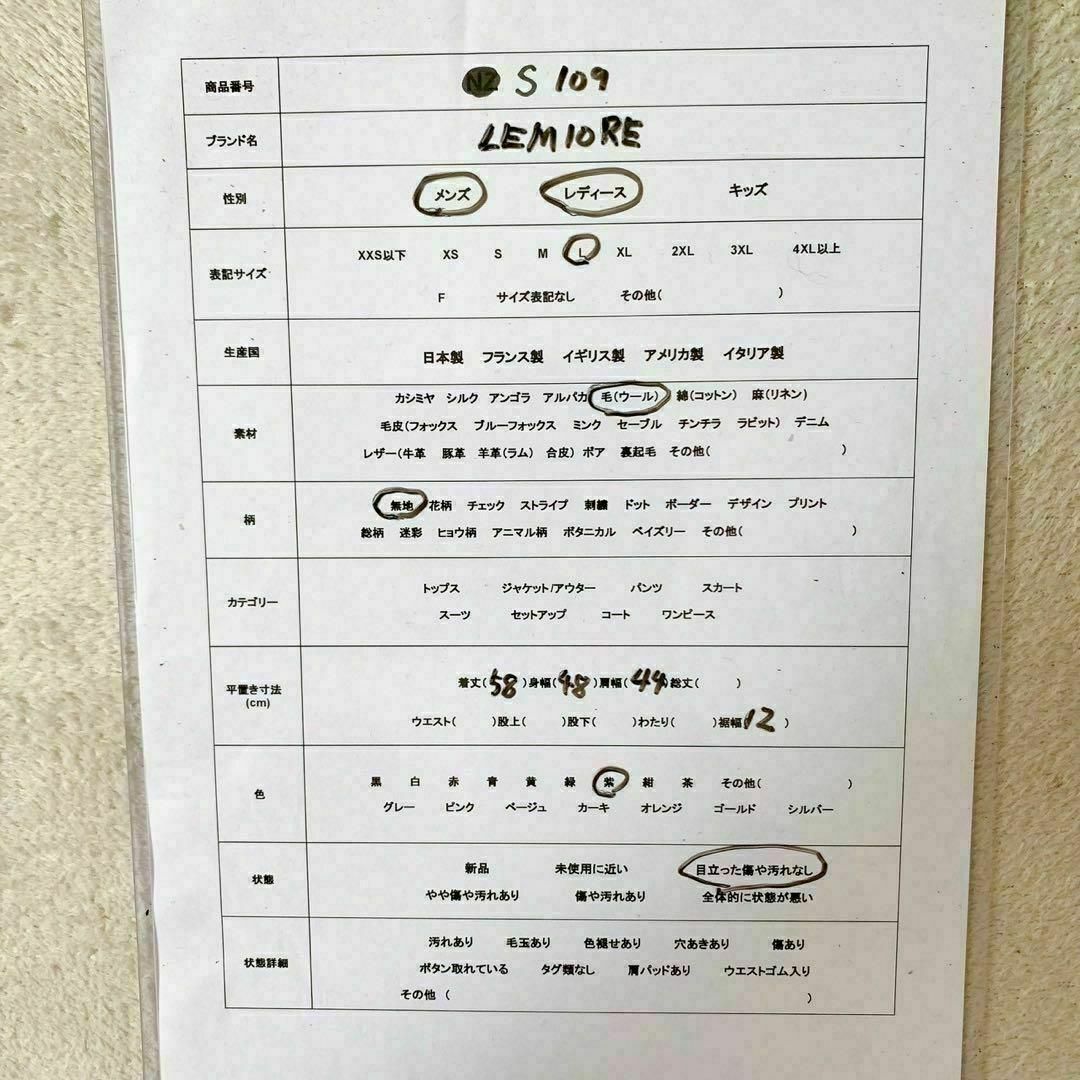 商品番号 NZ S 109
ブランド名 LEMIORE
性別 メンズ レディース キッズ
XXS以下 XS S M L XL 2XL 3XL 4XL以上
表記サイズ
F サイズ表記なし その他( )
生産国 日本製 フランス製 イギリス製 アメリカ製 イタリア製
カシミヤ シルク アンゴラ アルパカ 毛(ウール) 綿(コットン) 麻(リネン)
素材 毛皮(フォックス ブルーフォックス ミンク セーブル チンチラ ラビット) デニム
レザー(牛革 豚革 羊革(ラム) 合皮) ボア 裏起毛 その他( )
無地 花柄 チェック ストライプ 刺繍 ドット ボーダー デザイン プリント
柄
総柄 迷彩 ヒョウ柄 アニマル柄 ボタニカル ペイズリー その他( )
トップス ジャケット/アウター パンツ スカート
カテゴリー
スーツ セットアップ コート ワンピース
着丈(58)身幅(48)肩幅(44)総丈( )
平置き寸法
(cm)
ウエスト( )股上( )股下( )わたり( )裾幅(12 )
黒 白 赤 青 黄 緑 紫 紺 茶 その他( )
色
グレー ピンク ベージュ カーキ オレンジ ゴールド シルバー
新品 未使用に近い 目立った傷や汚れなし
状態
やや傷や汚れあり 傷や汚れあり 全体的に状態が悪い
汚れあり 毛玉あり 色褪せあり 穴あきあり 傷あり
状態詳細 ボタン取れている タグ類なし 肩パッドあり ウエストゴム入り
その他 ( )